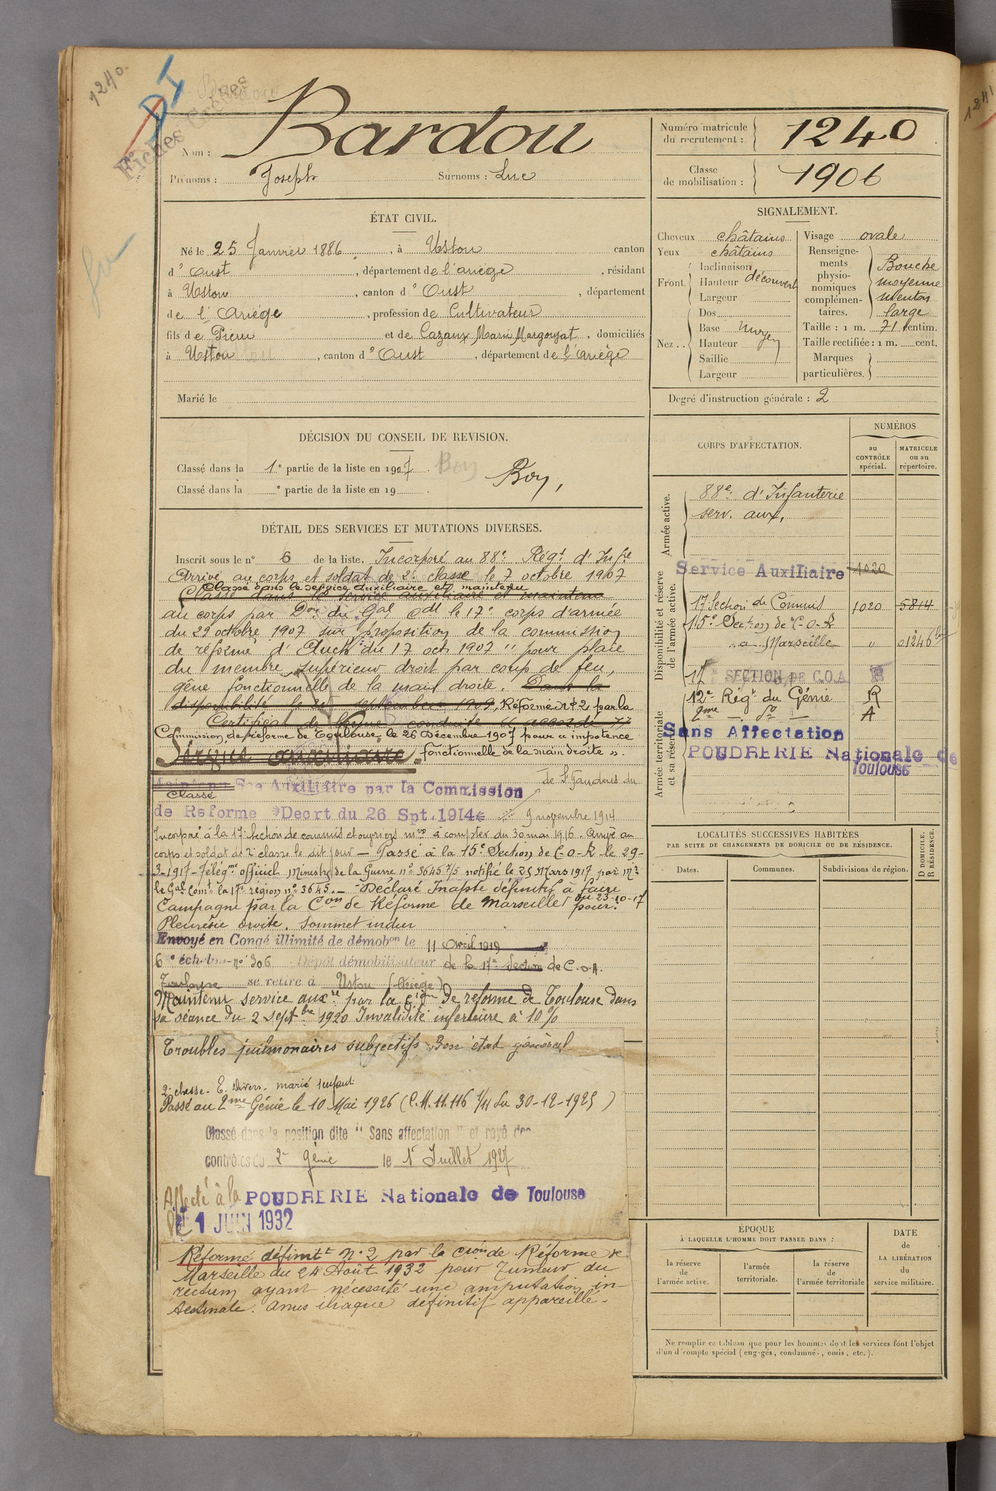 1240.
DI
Fiches Créées
Nom : Bardou
Prénoms : Joseph Surnoms : Luc
Numéro matricule du recrutement : 1240
Classe de mobilisation : 1906
ÉTAT CIVIL.
Né le 25 Janvier 1886, à Ustou canton
d'Oust, département de l'ariège, résidant
à Ustou, canton d'Oust, département
de l'Ariège, profession de Cultivateur
fils de Pierre et de Cazaux Marie Margousat, domiciliés
à Ustou, canton d'Oust, département de l'Ariège
Marié le
SIGNALEMENT.
Cheveux châtains
Yeux châtains
Front. Inclinaison
Hauteur découvert
Largeur
Nez. Dos
Base moyen
Hauteur
Saillie
Largeur
Visage ovale
Renseignements physionomiques complémentaires. Bouche moyenne menton large
Taille : 1 m. 71 centim.
Taille rectifiée : 1 m. cent.
Marques particulières.
Degré d'instruction générale : 2
DÉCISION DU CONSEIL DE REVISION.
Classé dans la 1e partie de la liste en 1907. Bon
Classé dans la e partie de la liste en 19 .
Bon,
DÉTAIL DES SERVICES ET MUTATIONS DIVERSES.
Inscrit sous le n° 6 de la liste. Incorporé au 88e Régt d'Infie
Arrivé au corps et soldat de 2e classe le 7 octobre 1907
Classé dans le service auxiliaire et maintenu
au corps par Don du Gal Cdt le 17e corps d'armée
du 22 octobre 1907 sur proposition de la commission
de réforme d'Auch du 17 octr 1907 " pour plaie
du membre supérieur droit par coup de feu,
gêne fonctionnelle de la main droite. Dans la
disponibilité le 25 septembre 1909, Réformé n° 2 par la
Certificat de bonne conduite accordé
Commission de réforme de Toulouse, le 26 Décembre 1907 pour " impotence
Service auxiliaire. fonctionnelle de la main droite ".
Classé Sce Auxiliaire par la Commission de St Gaudens du
de Reforme Décrt du 26 Spt. 1914 9 novembre 1914
Incorporé à la 17e Section de commis et ouvriers mres à compter du 30 mai 1916. Arrivé au
corps et soldat de 2e classe le dit jour — Passé à la 15e Section de C.O.A. le 29-
3-1917 - Télégme officiel Ministre de la Guerre n° 3645 5/5 notifié le 25 Mars 1917 par Mr
le Gal Comt la 17e région n° 3645. — Déclaré Inapte définitif à faire
Campagne par la Con de Réforme de Marseille du 23-10-17 pour:
Pleurésie droite. Sommet indur
Envoyé en Congé illimité de démobon le 11 Avril 1919
6e échelon n° 306 Dépôt démobilisateur de la 17e Section de C.O.A.
Toulouse se retire à Ustou (Ariège)
Maintenu service auxre par la Cion de réforme de Toulouse dans
sa séance du 2 Septbre 1920 Invalidité inférieure à 10%
Troubles pulmonaires subjectifs Bon état général
2e classe. E. Divers. marié 1 enfant
Passé au 2me Génie le 10 Mai 1926 (C.M. 11.116 1/11 du 30-12-1925)
Classé dans la position dite " Sans affectation " et rayé des
contrôles du 2e génie le 1er Juillet 1927
Affecté à la POUDRERIE Nationale de Toulouse
le 1 JUIN 1932
Réformé définitt N°2 par la cion de Réforme de
Marseille du 24 Août 1932 pour Tumeur du
rectum ayant nécessité une amputation in-
testinale. Anus iliaque définitif appareillé.
CORPS D'AFFECTATION.
NUMÉROS
au CONTRÔLE spécial.
MATRICULE ou au répertoire.
Armée active.
88e d'Infanterie
serv. aux.
Disponibilité et réserve de l'armée active.
Service Auxiliaire 1020
17 Section de Commis 1020 5814
15e Section de C.O.A
à Marseille " 01246
17 SECTION DE C.O.A. R
Armée territoriale et sa réserve.
12e Régt du Génie R
2me — do — A
Sans Affectation
POUDRERIE Nationale de
Toulouse
LOCALITÉS SUCCESSIVES HABITÉES
PAR SUITE DE CHANGEMENTS DE DOMICILE OU DE RÉSIDENCE.
Dates. Communes. Subdivisions de région. D. DOMICILE. R. RÉSIDENCE.
ÉPOQUE
À LAQUELLE L'HOMME DOIT PASSER DANS :
la réserve de l'armée active.
l'armée territoriale.
la réserve de l'armée territoriale
DATE de LA LIBÉRATION du service militaire.
Ne remplir ce tableau que pour les hommes dont les services font l'objet
d'un décompte spécial (engagés, condamnés, omis, etc.).